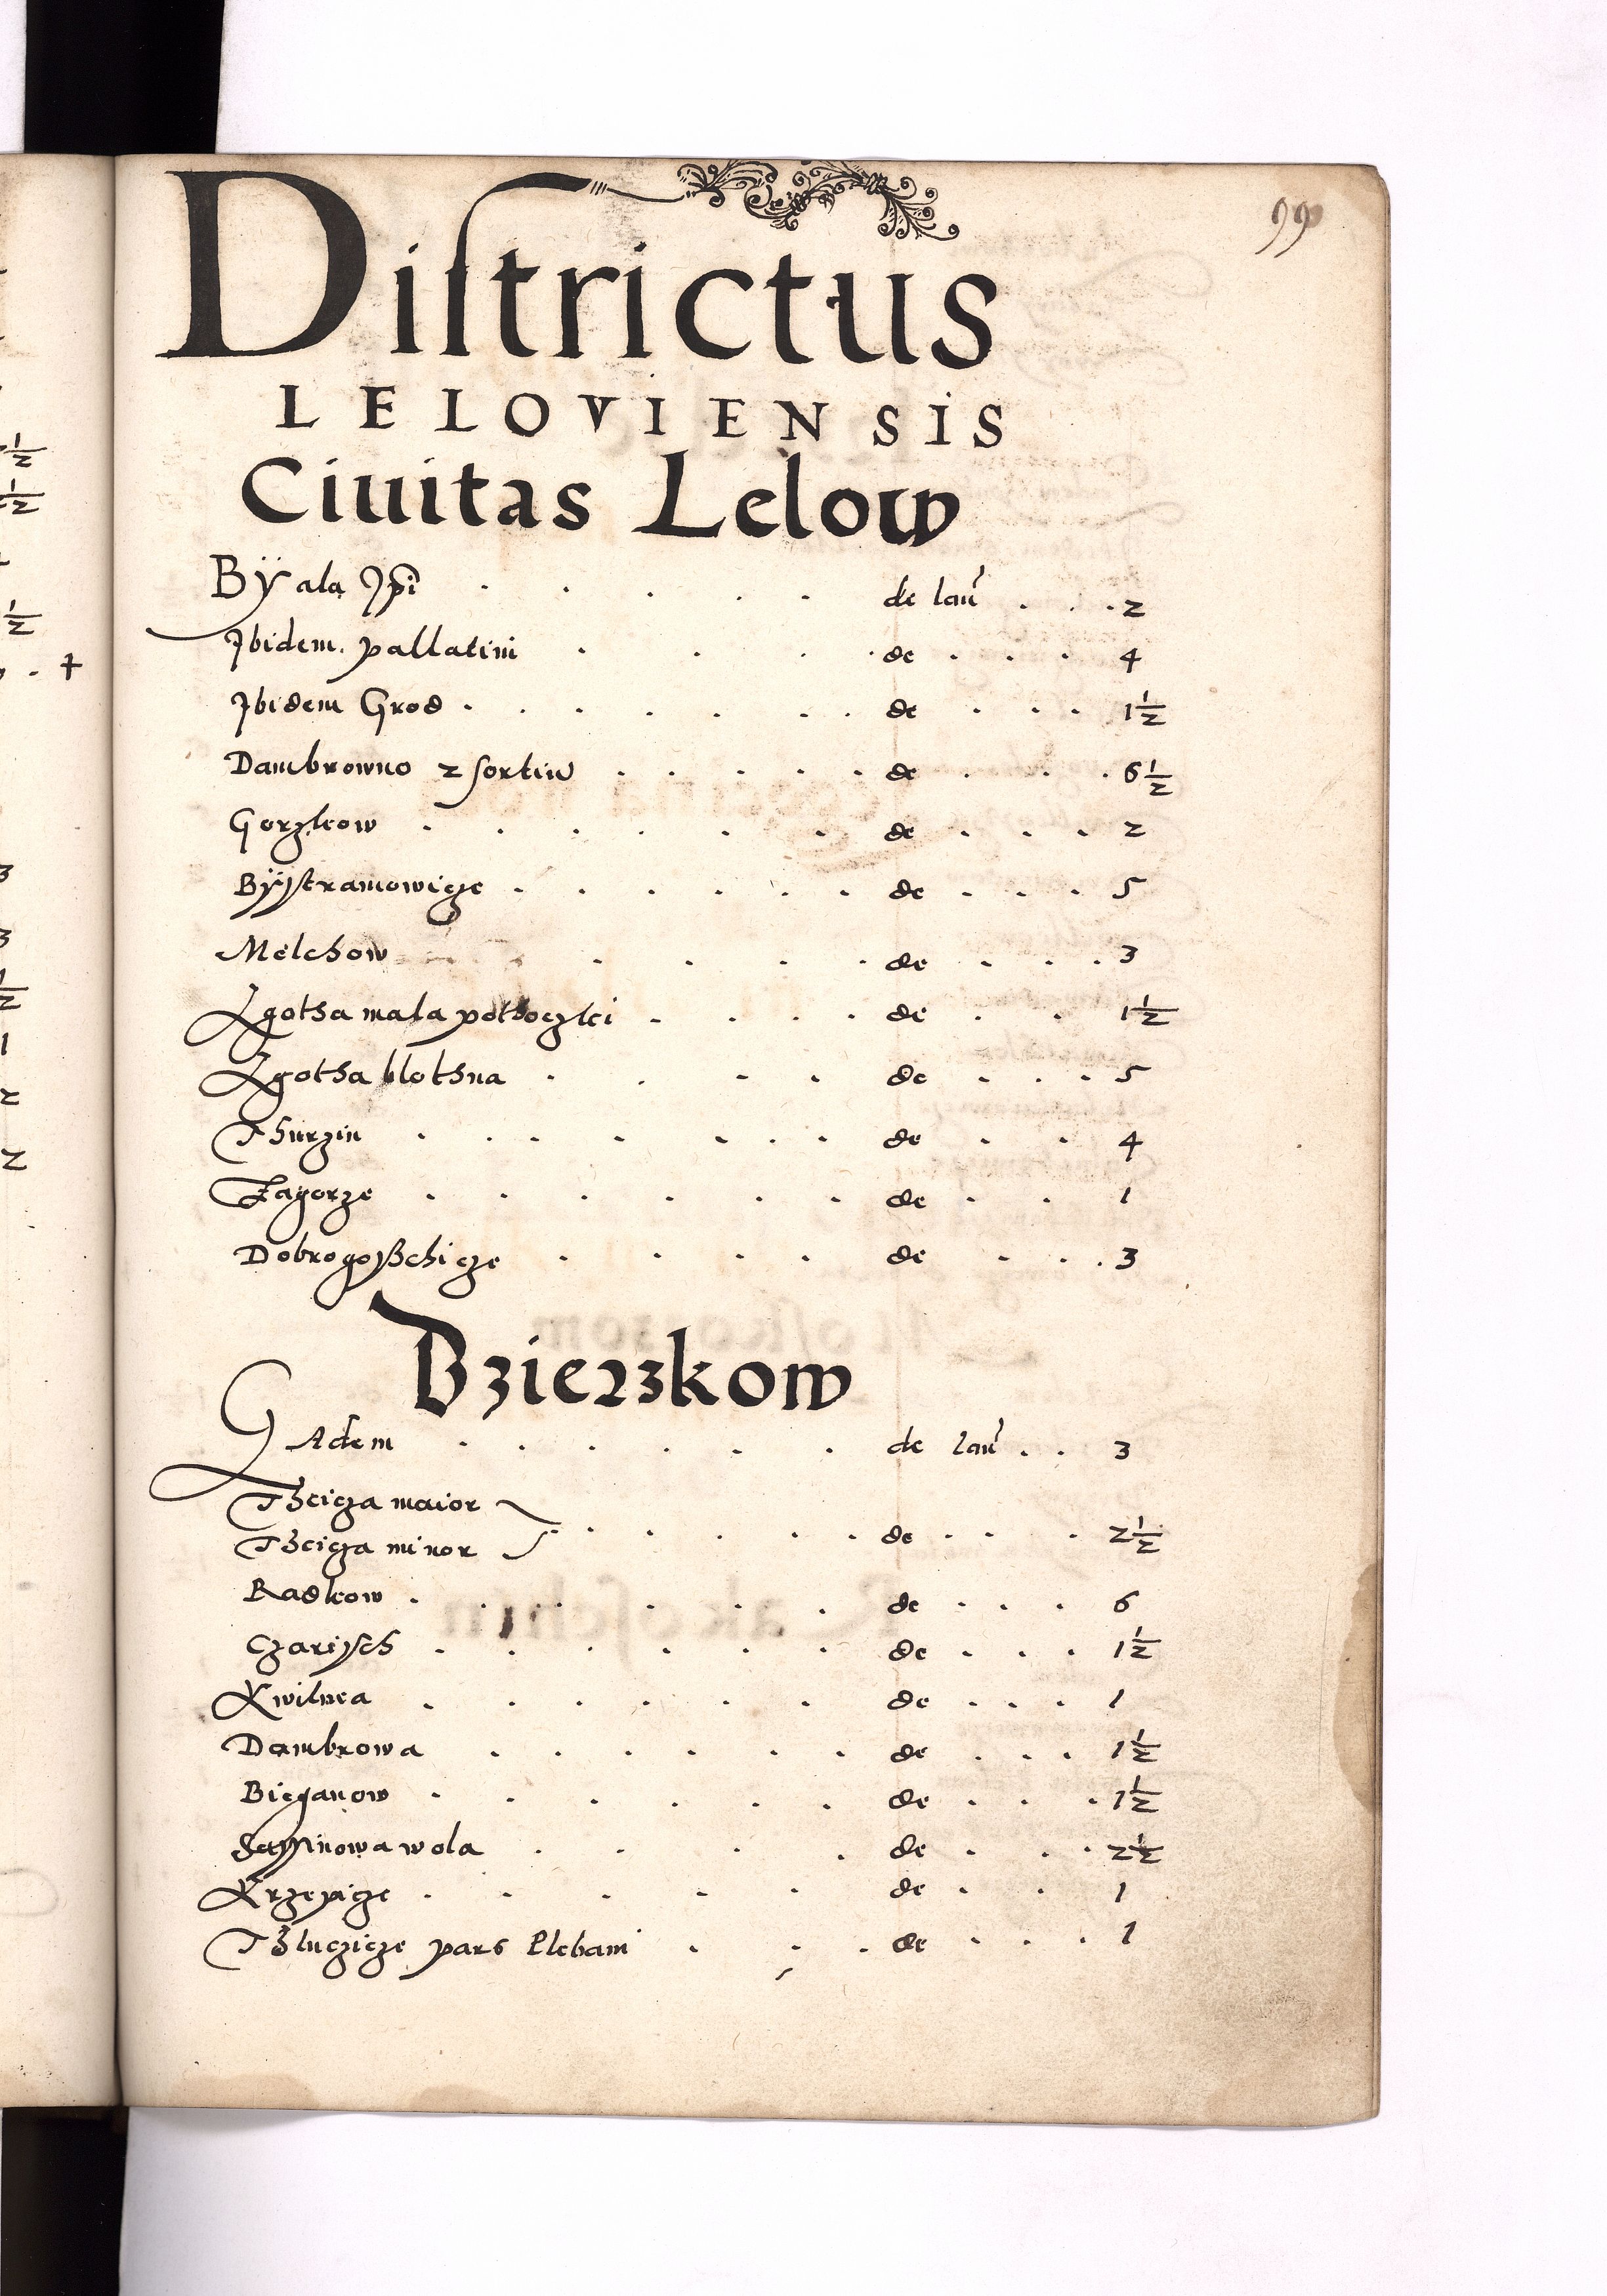 99
Diſtrictus
LELOVIENSIS
Ciuitas Lelow
Bÿala Jpi . . . . . de lan . . . 2
Jbidem pallatini . . . . de . . . 4
Jbidem Grod . . . . . . . de . . . 1½
Dambrowno 2 sortiu . . . . . de . . . 6½
Gorzkow . . . . . . de . . . 2
Bÿstranowicze . . . . . . de . . . 5
Melchow . . . . de . . . 3
Lgotha mala potkoczki . . . . de . . 1½
Lgotha blothna . . . . de . . . 5
Thurzin . . . . . . . de . . 4
Zagorze . . . . . . de . . 1
Dobrogoßchicze . . . . de . . . 3
Dzierzkow
Jbidem . . . . . . de lan . . 3
Thcicza maior
Thcicza minor . . . . . de . . . 2½
Radkow . . . . . de . . . 6
Czarisch . . . . . . de . . . 1½
Kwilnea . . . . . . de . . . 1
Dambrowa . . . . . . de . . . 1½
Bieganow . . . . . . de . . . 1½
wola . . . . de . . . 2½
Krzepicze . . . . . de . . 1
Thluczicze pars Plebani . . . de . . . 1